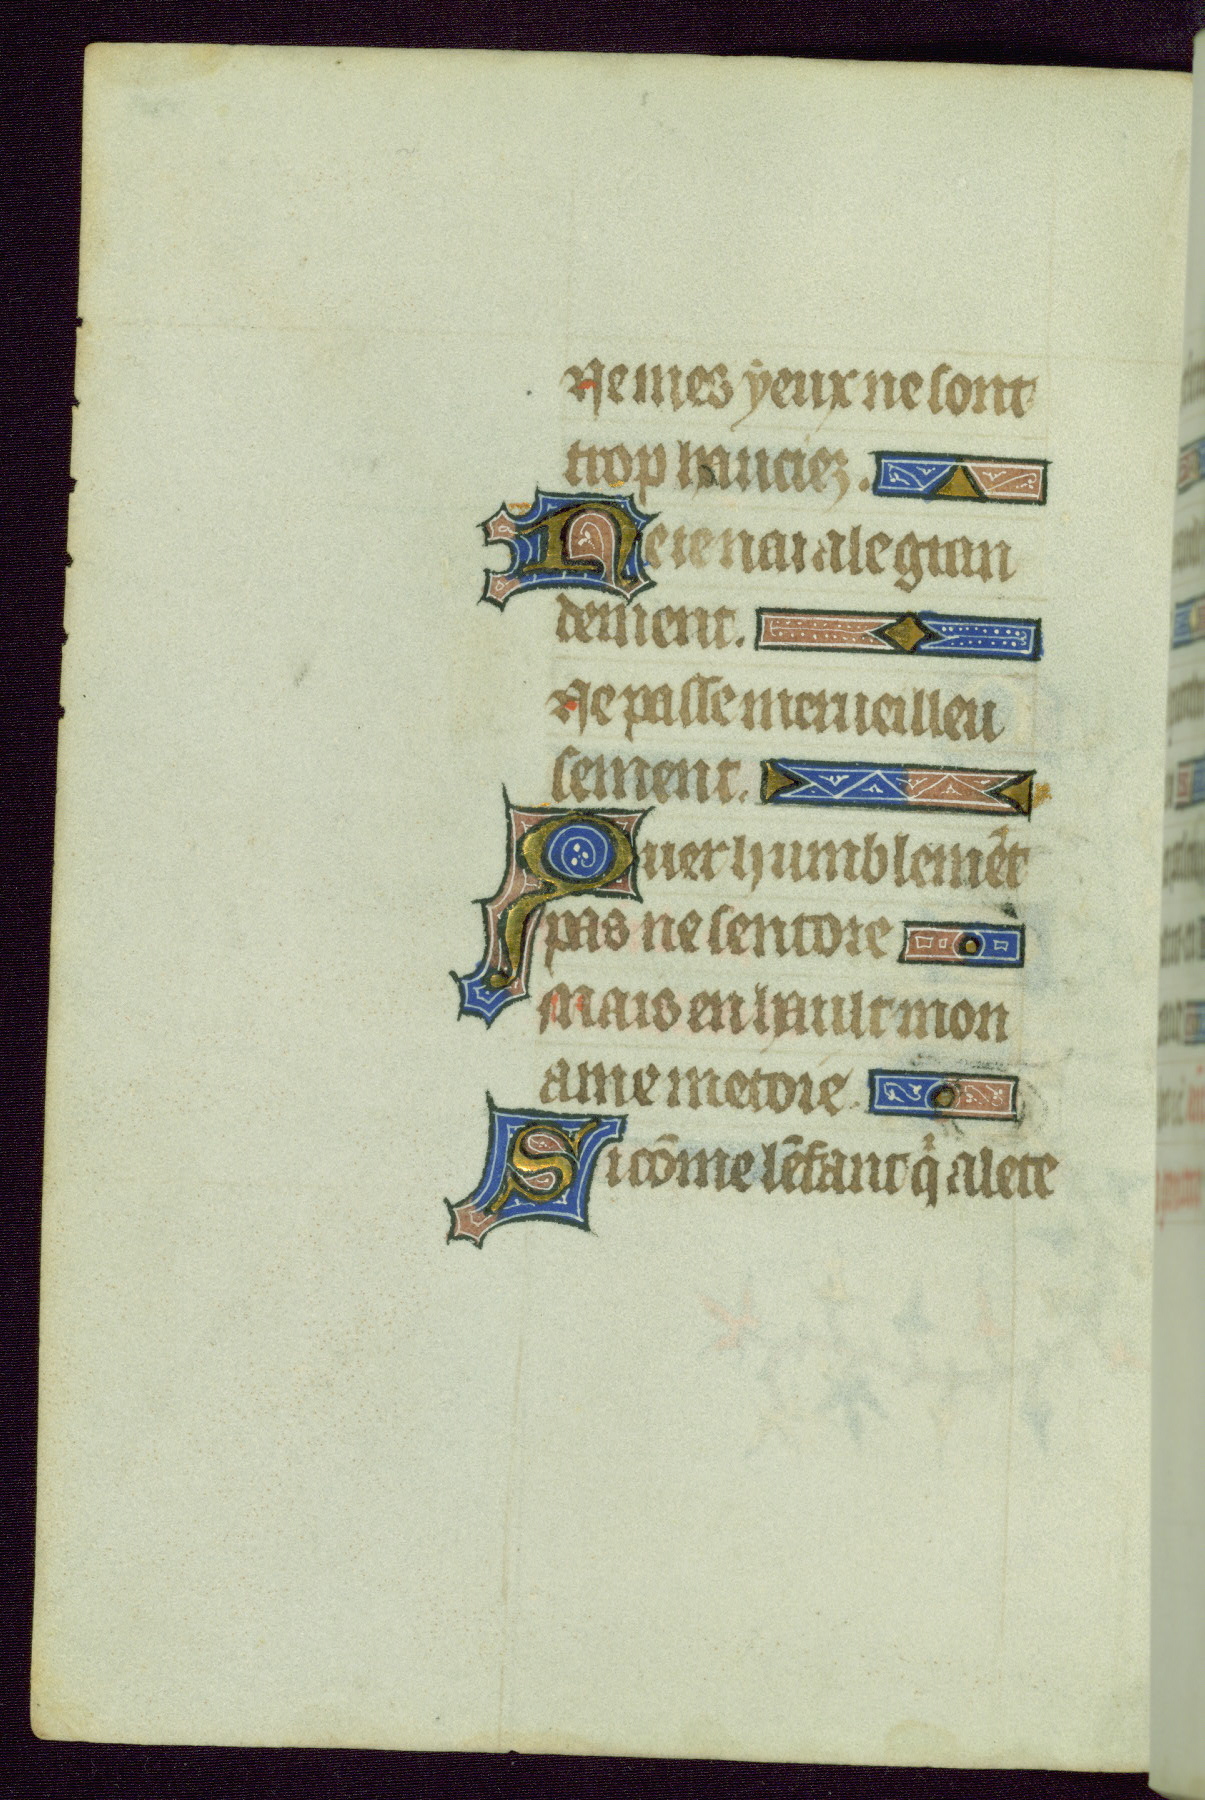 Ne mes yeux ne sont
trop hauciez.
Ne ie nai ale gran
dement.
Ne passe merueilleu
sement.
Quer humblemēt
pas ne sentore
Mais en hault mon
ame metore
Si cōme lēfant qͥ alete